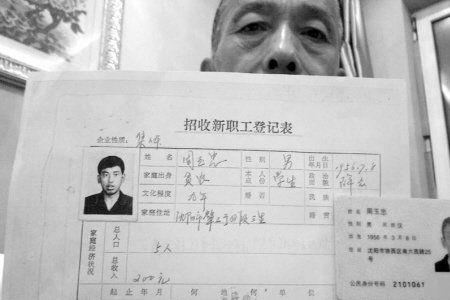 招收新职工登记表
企业性质: 集体
姓名 周玉忠 性别 男 出生年月日 1956.7.8
家庭出身 贫农 本人成份 学生 政治面貌 群众
文化程度 九年 婚否 民族
家庭住址 沈阳市 籍贯
家庭经济状况
总人口 5人
总收入 200元
起止年月 何地何单位
姓名 周玉忠
性别 男 民族 汉
出生 1956 年 3 月 8 日
住址 沈阳市铁西区南六西路25号
公民身份号码 2101061